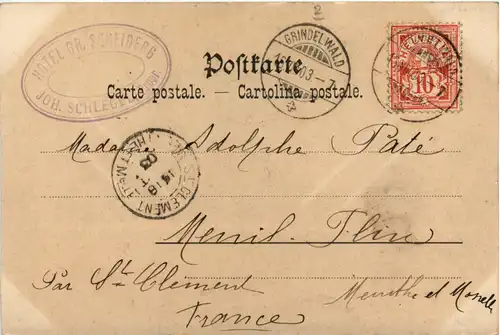 HOTEL GR. SCHEIDEGG
JOH. SCHLEGEL
GRINDELWALD
03 - 7
10
Postkarte.
Carte postale. — Cartolina postale.
Madame Adolphe Paté
ST CLEMENT
03
Menil-Flin
Par St Clément
Meurthe et Moselle
France